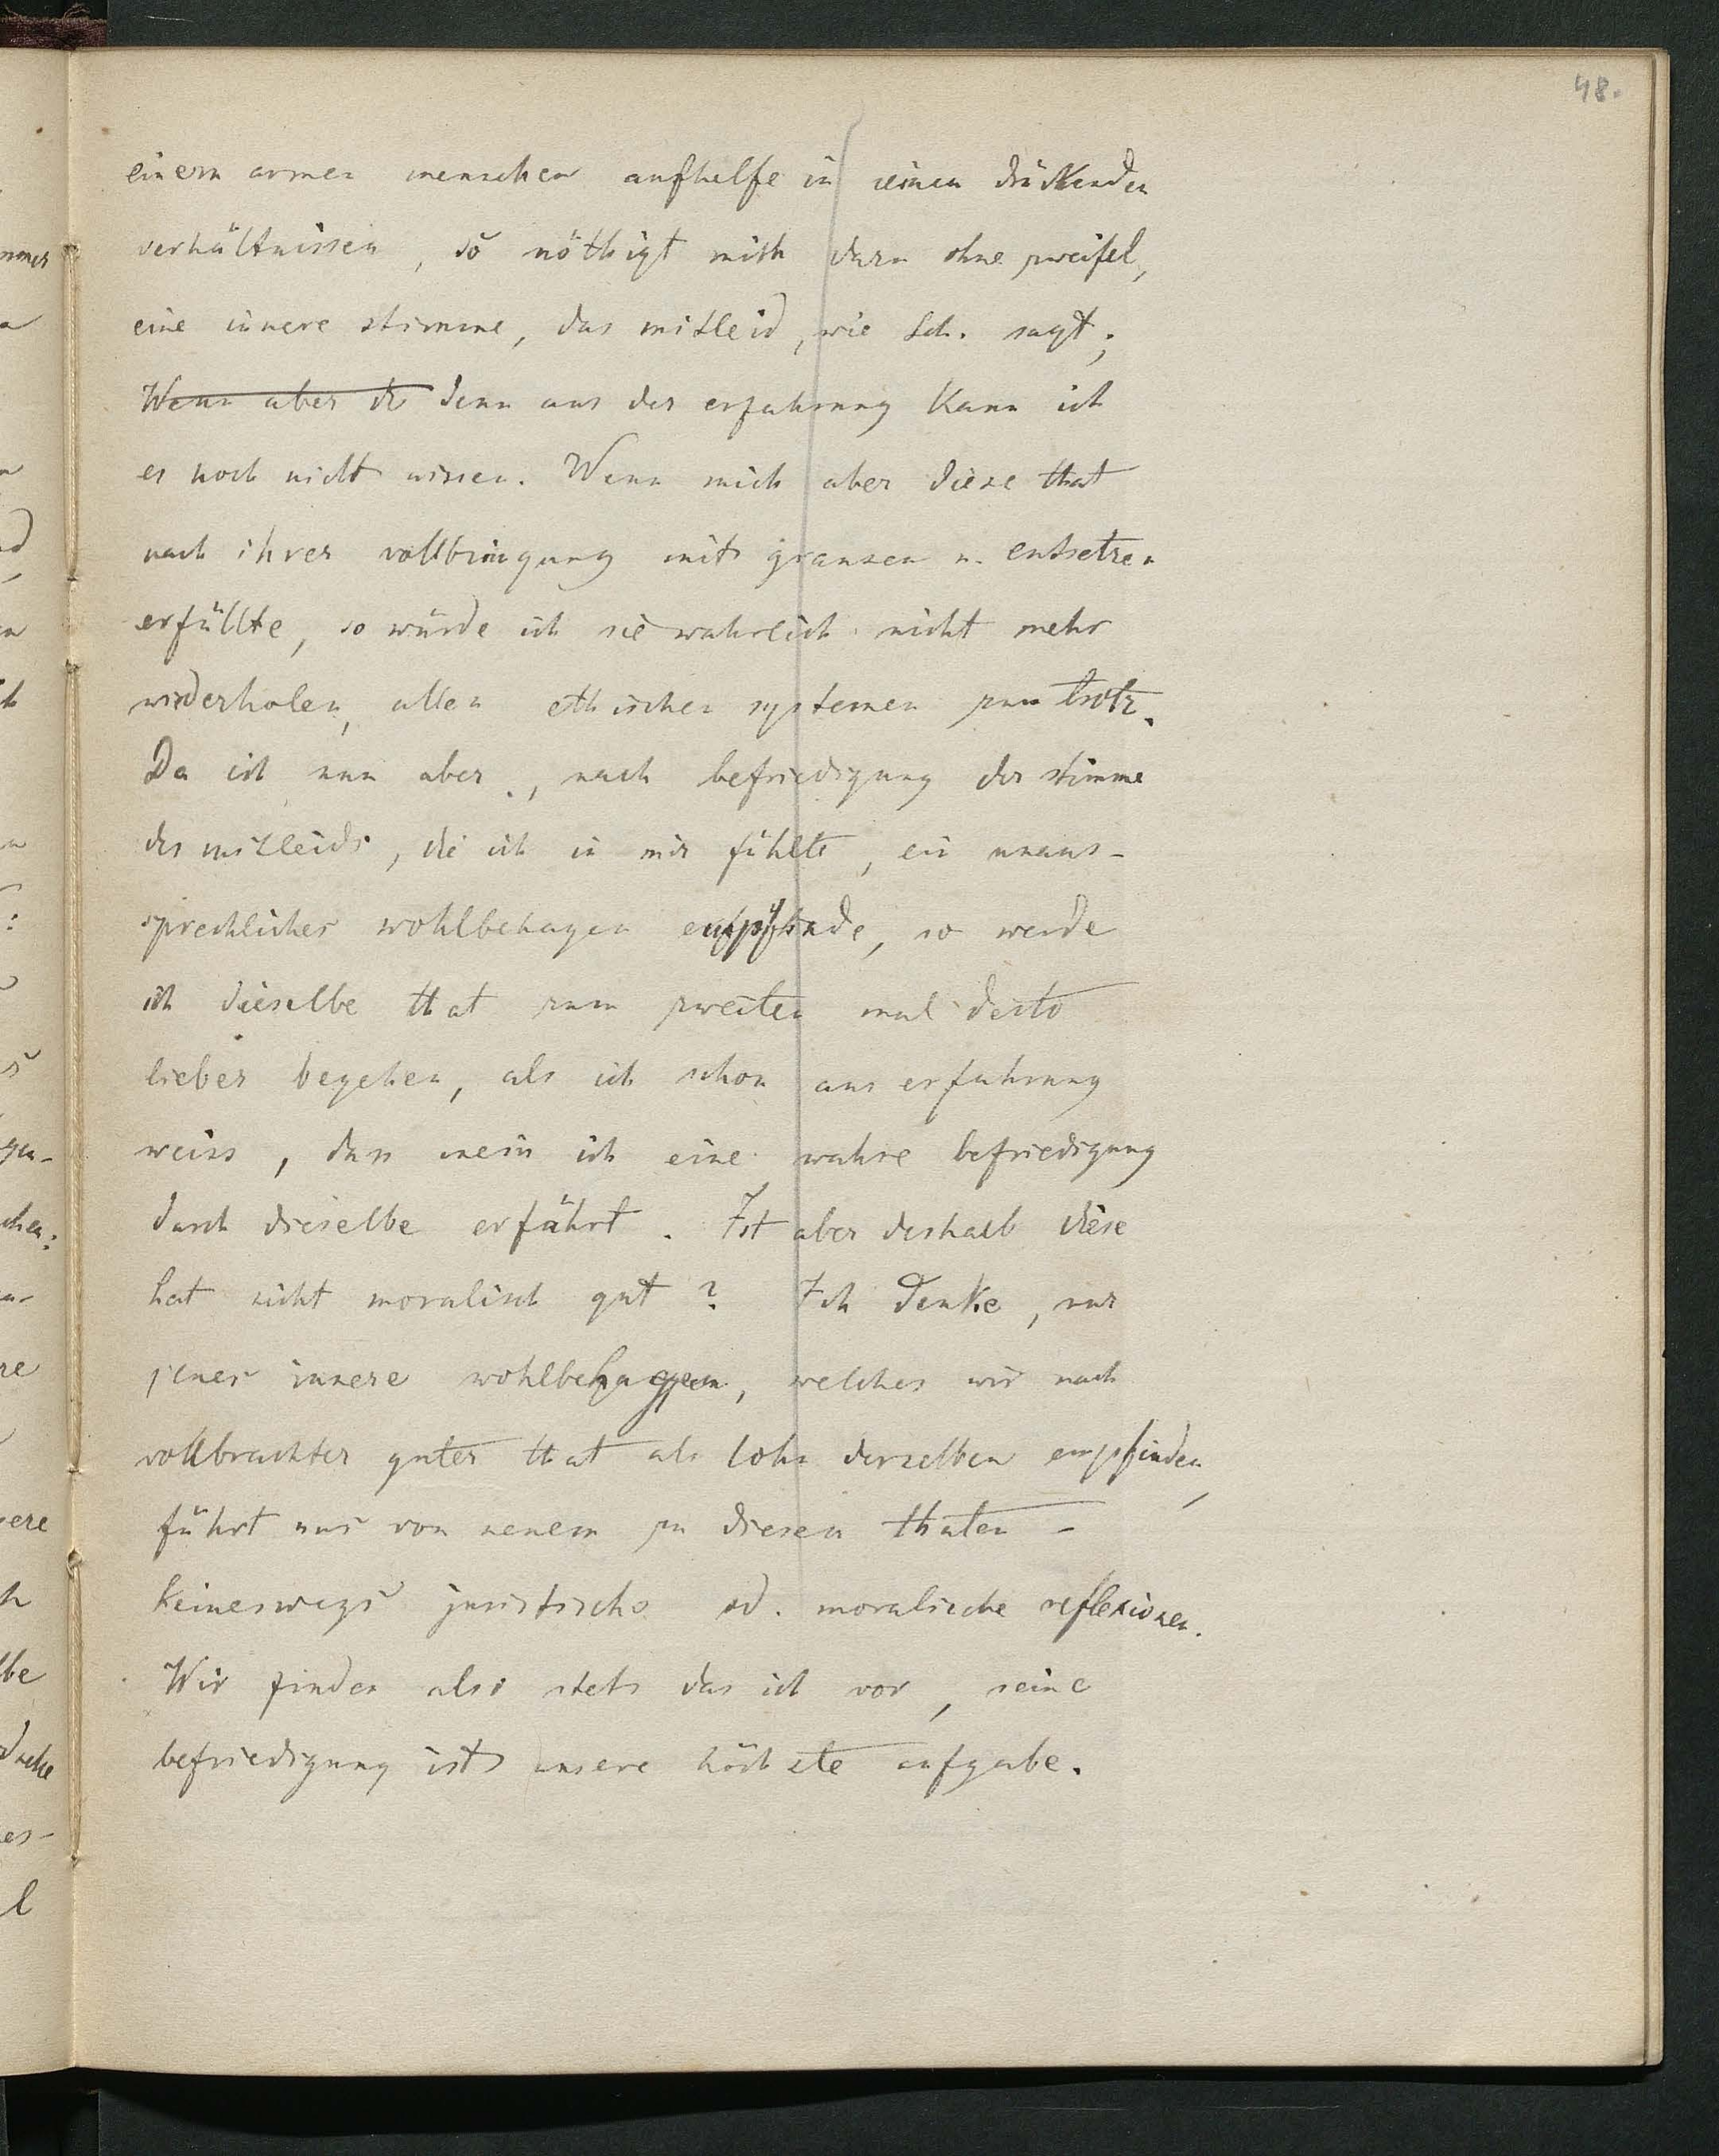 48.
einem armen menschen aufhelfe in seinen drückenden
verhältnissen, so nöthigt mich dazu ohne zweifel,
eine innere stimme, das mitleid, wie Sch. sagt;
Wenn aber di denn aus der erfahrung kann ich
es noch nicht wissen. Wenn mich aber diese that
nach ihrer vollbringung mit grausen u. entsetzen
erfüllte, so würde ich sie wahrlich nicht mehr
wiederholen, allen ethischen systemen zum trotz.
Da ich nun aber, nach befriedigung der stimme
des mitleids, die ich in mir fühlte, ein unaus-
sprechliches wohlbehagen empfinde, so werde
ich dieselbe that zum zweiten mal desto
lieber begehen, als ich schon aus erfahrung
weiss, dass mein ich eine wahre befriedigung
durch dieselbe erfährt. Ist aber deshalb diese
hat nicht moralisch gut? Ich denke, nur
jenes innere wohlbehagen, welches wir nach
vollbrachter guter that als lohn derselben empfinden,
führt uns von neuem zu diesen thaten –
keineswegs juristische od. moralische reflexionen.
Wir finden also stets das ich vor, seine
befriedigung ist unsere höchste aufgabe.